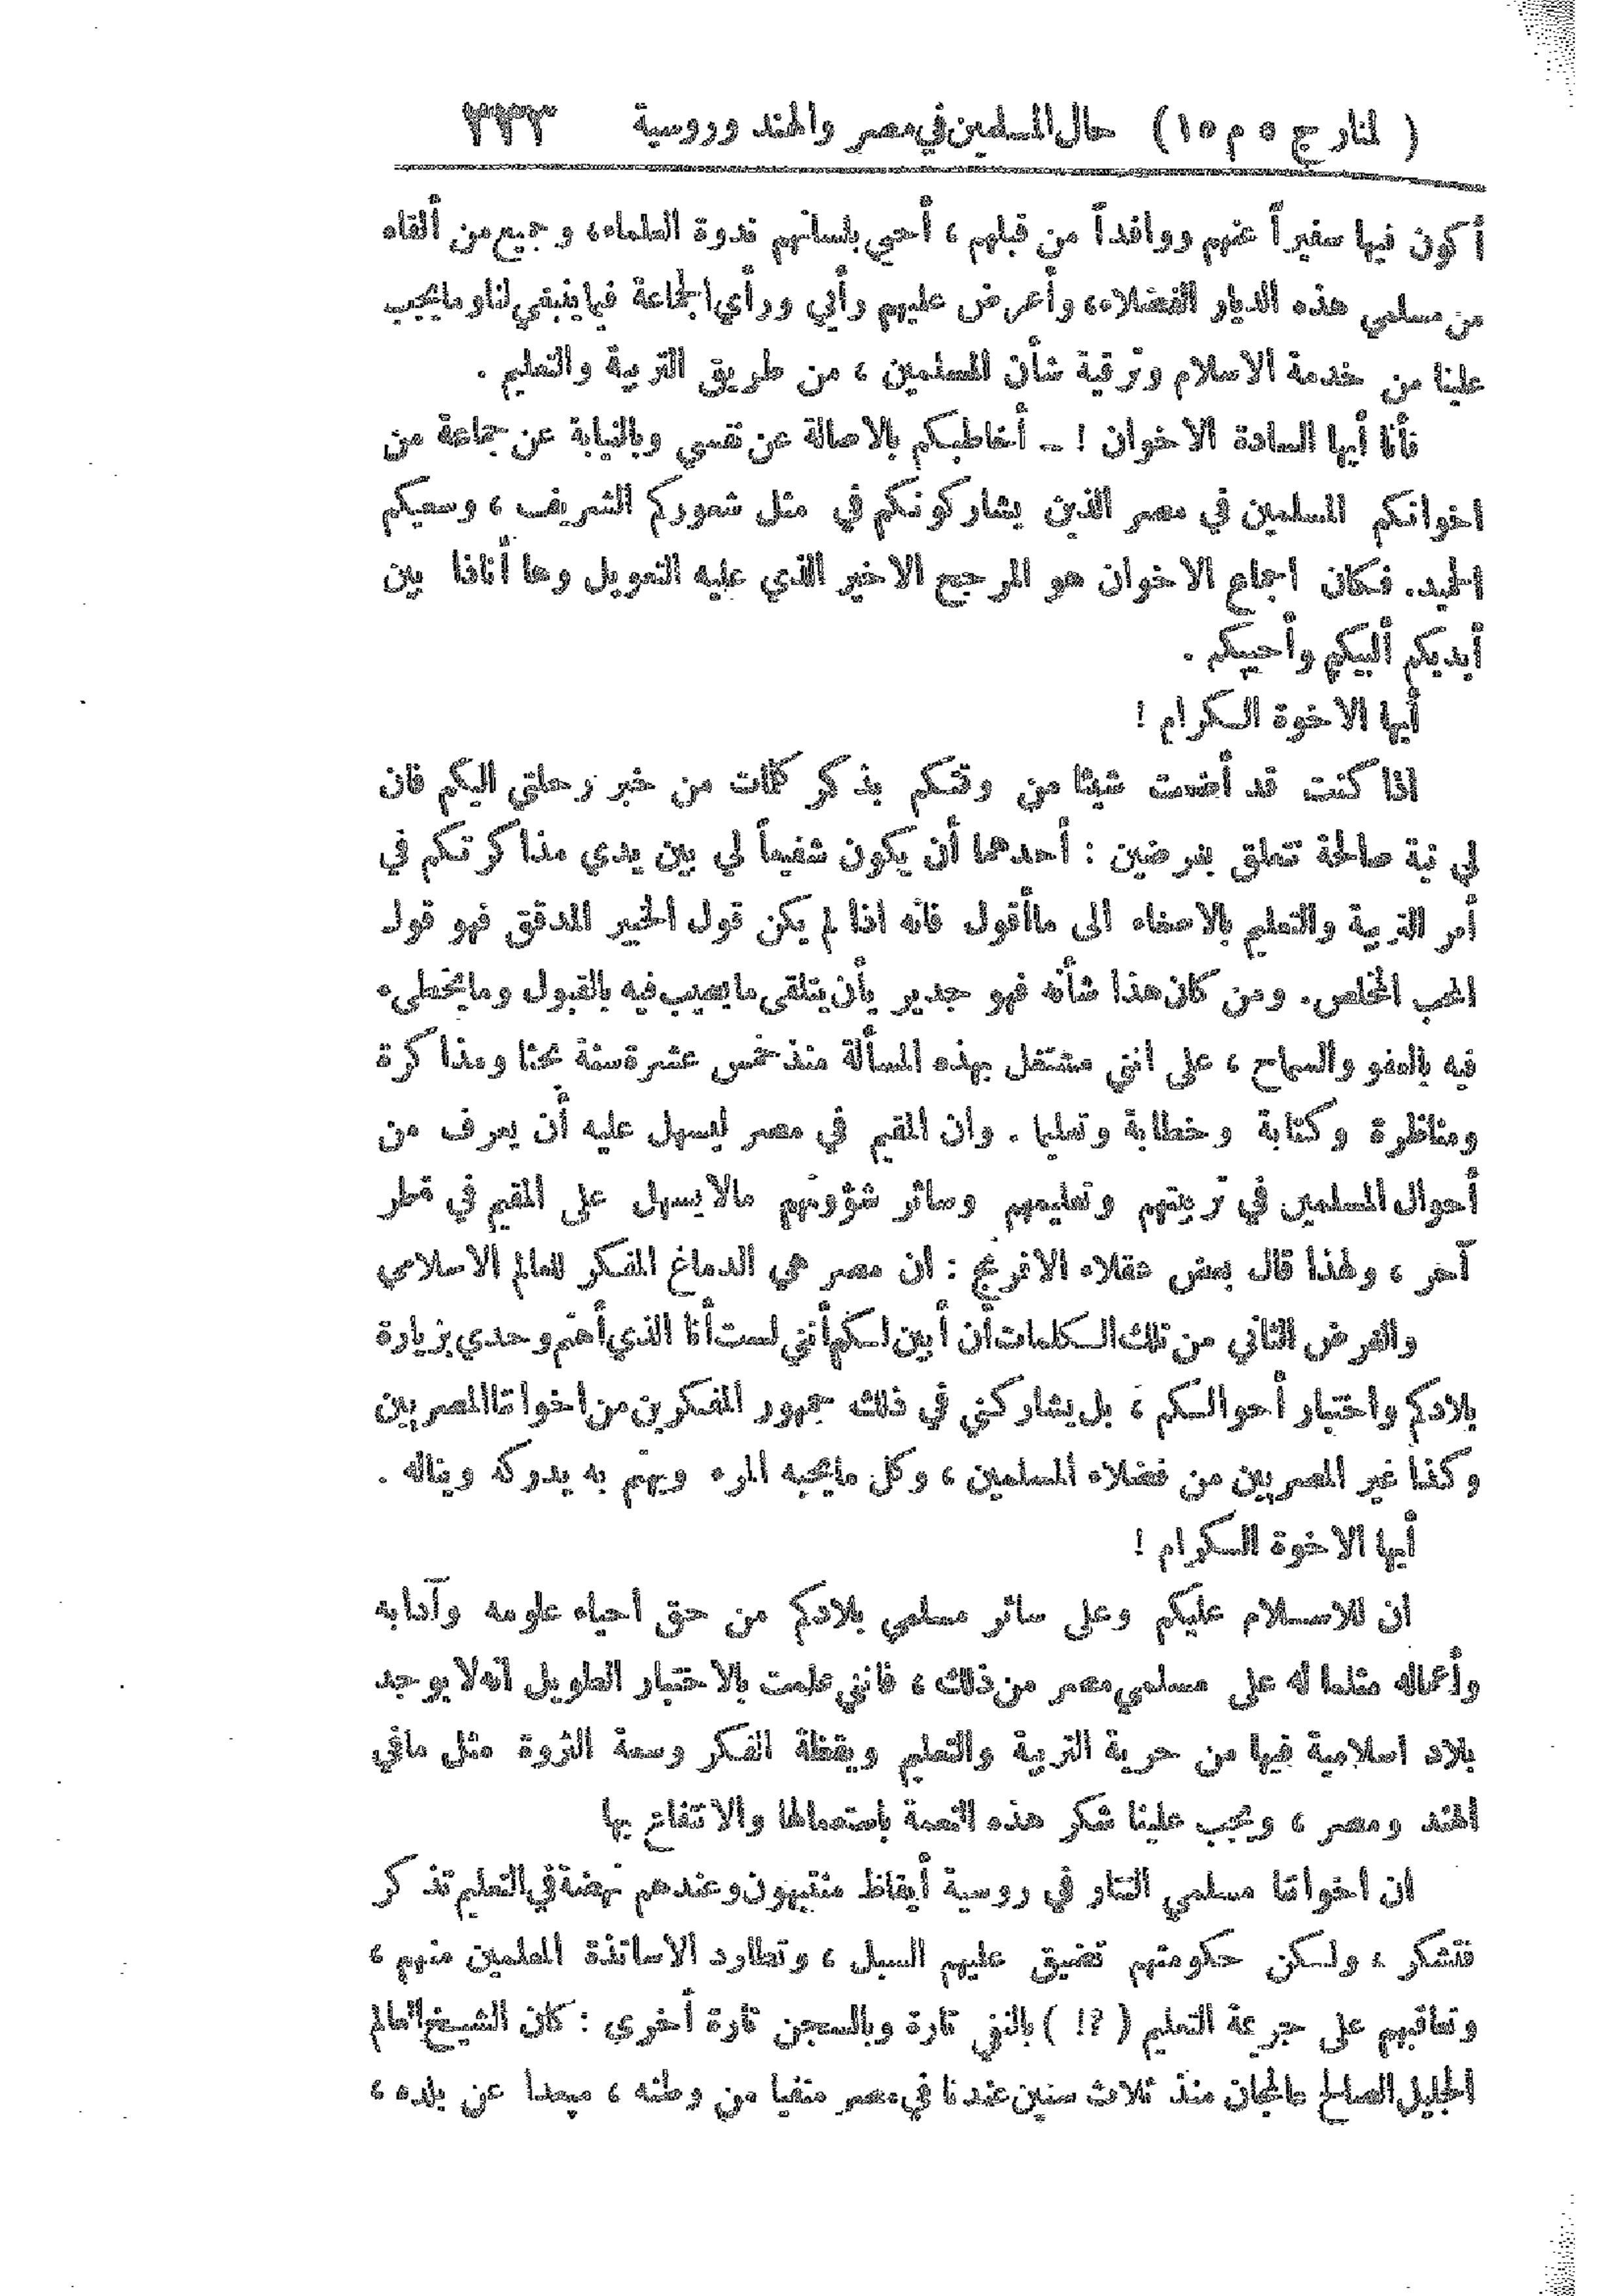 ( المنار ج ٥ م ١٥ ) حال المسلمين في مصر والهند وروسية ٣٣٣
أكون فيها سفيراً عنهم ووافداً من قبلهم ، أحيي بلسانهم ندوة العلماء، وجميع من ألقاه
من مسلمي هذه الديار الفضلاء، وأعرض عليهم رأيي ورأي الجماعة فيما ينبغي لنا وما يجب
علينا من خدمة الاسلام وترقية شأن المسلمين ، من طريق التربية والتعليم .
فأنا أيها السادة الاخوان ! ــ أخاطبكم بالاصالة عن نفسي وبالنيابة عن جماعة من
اخوانكم المسلمين في مصر الذين يشاركونكم في مثل شعوركم الشريف ، وسعيكم
الحميد. فكان اجماع الاخوان هو المرجح الاخير الذي عليه التعويل وها أناذا بين
أيديكم ألبيكم وأحييكم .
أيها الاخوة الكرام !
اذا كنت قد أضعت شيئا من وقتكم بذكر كلمات من خبر رحلتي اليكم فان
لي نية صالحة تتعلق بغرضين : أحدهما أن يكون شفيعاً لي بين يدي مذاكرتكم في
أمر التربية والتعليم بالاصغاء الى ما أقول فانه اذا لم يكن قول الخبير المدقق فهو قول
المحب المخلص. ومن كان هذا شأنه فهو جدير بأن يتلقى ما يصيب فيه بالقبول وما يخطىء
فيه بالعفو والسماح ، على انني مشتغل بهذه المسألة منذ خمس عشرة سنة بحثا ومذاكرة
ومناظرة وكتابة وخطابة وتعليما . وان المقيم في مصر ليسهل عليه أن يعرف من
أحوال المسلمين في تربيتهم وتعليمهم وسائر شؤونهم مالا يسهل على المقيم في قطر
آخر ، ولهذا قال بعض عقلاء الافرنج : ان مصر هي الدماغ المفكر للعالم الاسلامي
والغرض الثاني من تلك الكلمات أن أبين لكم أنني لست أنا الذي أهتم وحدي بزيارة
بلادكم واختبار أحوالكم ، بل يشاركني في ذلك جمهور المفكرين من اخواننا المصريين
وكذا غير المصريين من فضلاء المسلمين ، وكل ما يحبه المرء ويهتم به يدركه ويناله .
أيها الاخوة الكرام !
ان للاسلام عليكم وعلى سائر مسلمي بلادكم من حق احياء علومه وآدابه
وأعماله مثلما له على مسلمي مصر من ذلك ، فانني علمت بالاختبار الطويل انه لا يوجد
بلاد اسلامية فيها من حرية التربية والتعليم ويقظة الفكر وسعة الثروة مثل ما في
الهند ومصر ، ويجب علينا شكر هذه النعمة باستعمالها والانتفاع بها
ان اخواننا مسلمي التتار في روسية أيقاظ منتبهون وعندهم نهضة في التعليم تذكر
فتشكر ، ولكن حكومتهم تضيق عليهم السبل ، وتطارد الاساتذة المعلمين منهم ،
وتعاقبهم على جريمة التعليم ( ?! ) بالنفي تارة وبالسجن تارة أخرى : كان الشيخ العالم
الجليل الصالح عالمجان منذ ثلاث سنين عندنا في مصر منفيا من وطنه ، مبعدا عن بلده ،